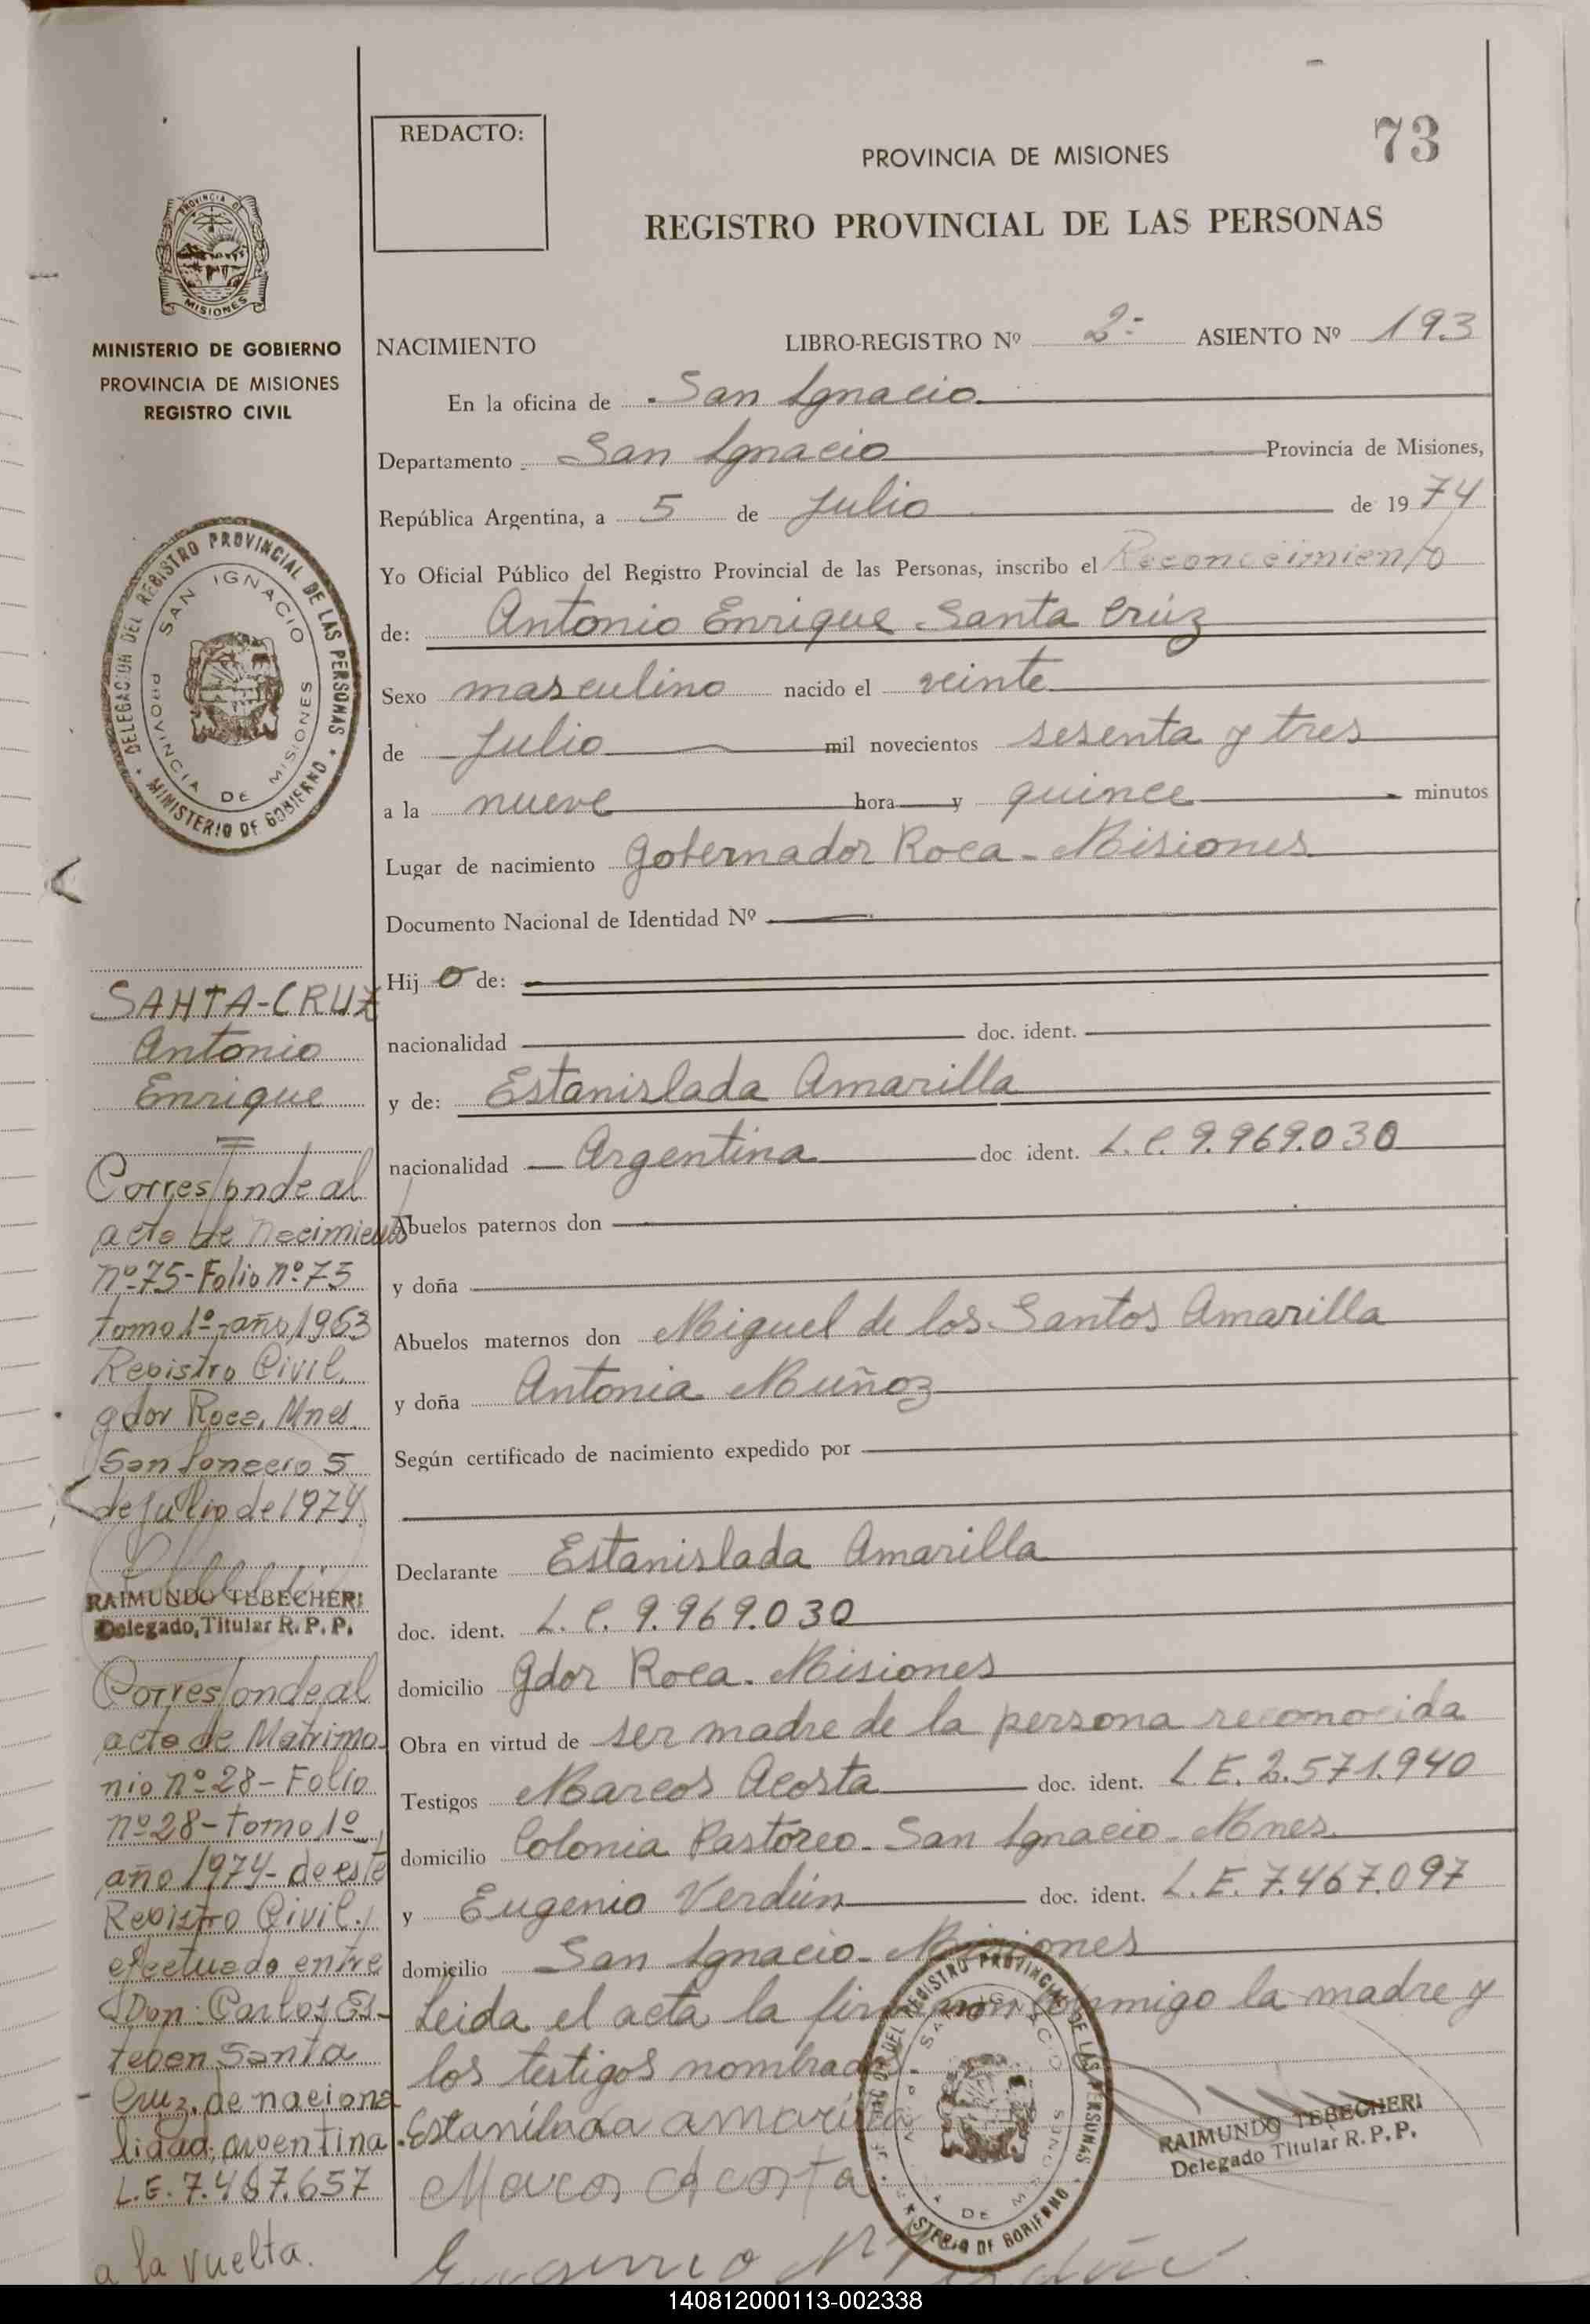 REDACTO:
PROVINCIA DE MISIONES
73
REGISTRO PROVINCIAL DE LAS PERSONAS
PROVINCIA DE
MISIONES
MINISTERIO DE GOBIERNO
PROVINCIA DE MISIONES
REGISTRO CIVIL
NACIMIENTO LIBRO-REGISTRO Nº 2º ASIENTO Nº 193
En la oficina de San Ignacio
Departamento San Ignacio Provincia de Misiones,
República Argentina, a 5 de Julio de 1974
Yo Oficial Público del Registro Provincial de las Personas, inscribo el Reconocimiento
de: Antonio Enrique Santa Crúz
Sexo masculino nacido el veinte
de Julio mil novecientos sesenta y tres
a la nueve hora y quince minutos
Lugar de nacimiento Gobernador Roca - Misiones
Documento Nacional de Identidad Nº
Hij o de:
nacionalidad doc. ident.
y de: Estanislada Amarilla
nacionalidad Argentina doc ident. L.C. 9.969.030
Abuelos paternos don
y doña
Abuelos maternos don Miguel de los Santos Amarilla
y doña Antonia Muñoz
Según certificado de nacimiento expedido por
Declarante Estanislada Amarilla
doc. ident. L.C. 9.969.030
domicilio Gdor Roca. Misiones
Obra en virtud de ser madre de la persona reconocida
Testigos Marcos Acosta doc. ident. L.E. 2.571.940
domicilio Colonia Pastoreo - San Ignacio - Mnes
y Eugenio Verdún doc. ident. L.E. 7.467.097
domicilio San Ignacio - Misiones
Leida el acta la firmaron conmigo la madre y
los testigos nombrados.
Estanilada amarilla
Marcos Acosta
RAIMUNDO TEBECHERI
Delegado Titular R. P. P.
DELEGACION DEL REGISTRO PROVINCIAL DE LAS PERSONAS
MINISTERIO DE GOBIERNO
SAN IGNACIO
PROVINCIA DE MISIONES
SANTA-CRUZ
Antonio
Enrique
Corresponde al
acta de nacimiento
nº 75 - Folio nº 75
tomo 1º - año 1963
Registro Civil
gdor Roca, Mnes
San Ignacio 5
de Julio de 1974
RAIMUNDO TEBECHERI
Delegado, Titular R. P. P.
Corresponde al
acta de Matrimo-
nio nº 28 - Folio
nº 28 - tomo 1º
año 1974 - de este
Registro Civil,
efectuado entre
Don: Carlos Es-
teban Santa
Cruz, de naciona
lidad, argentina
L.E. 7.487.657
a la vuelta.
140812000113-002338